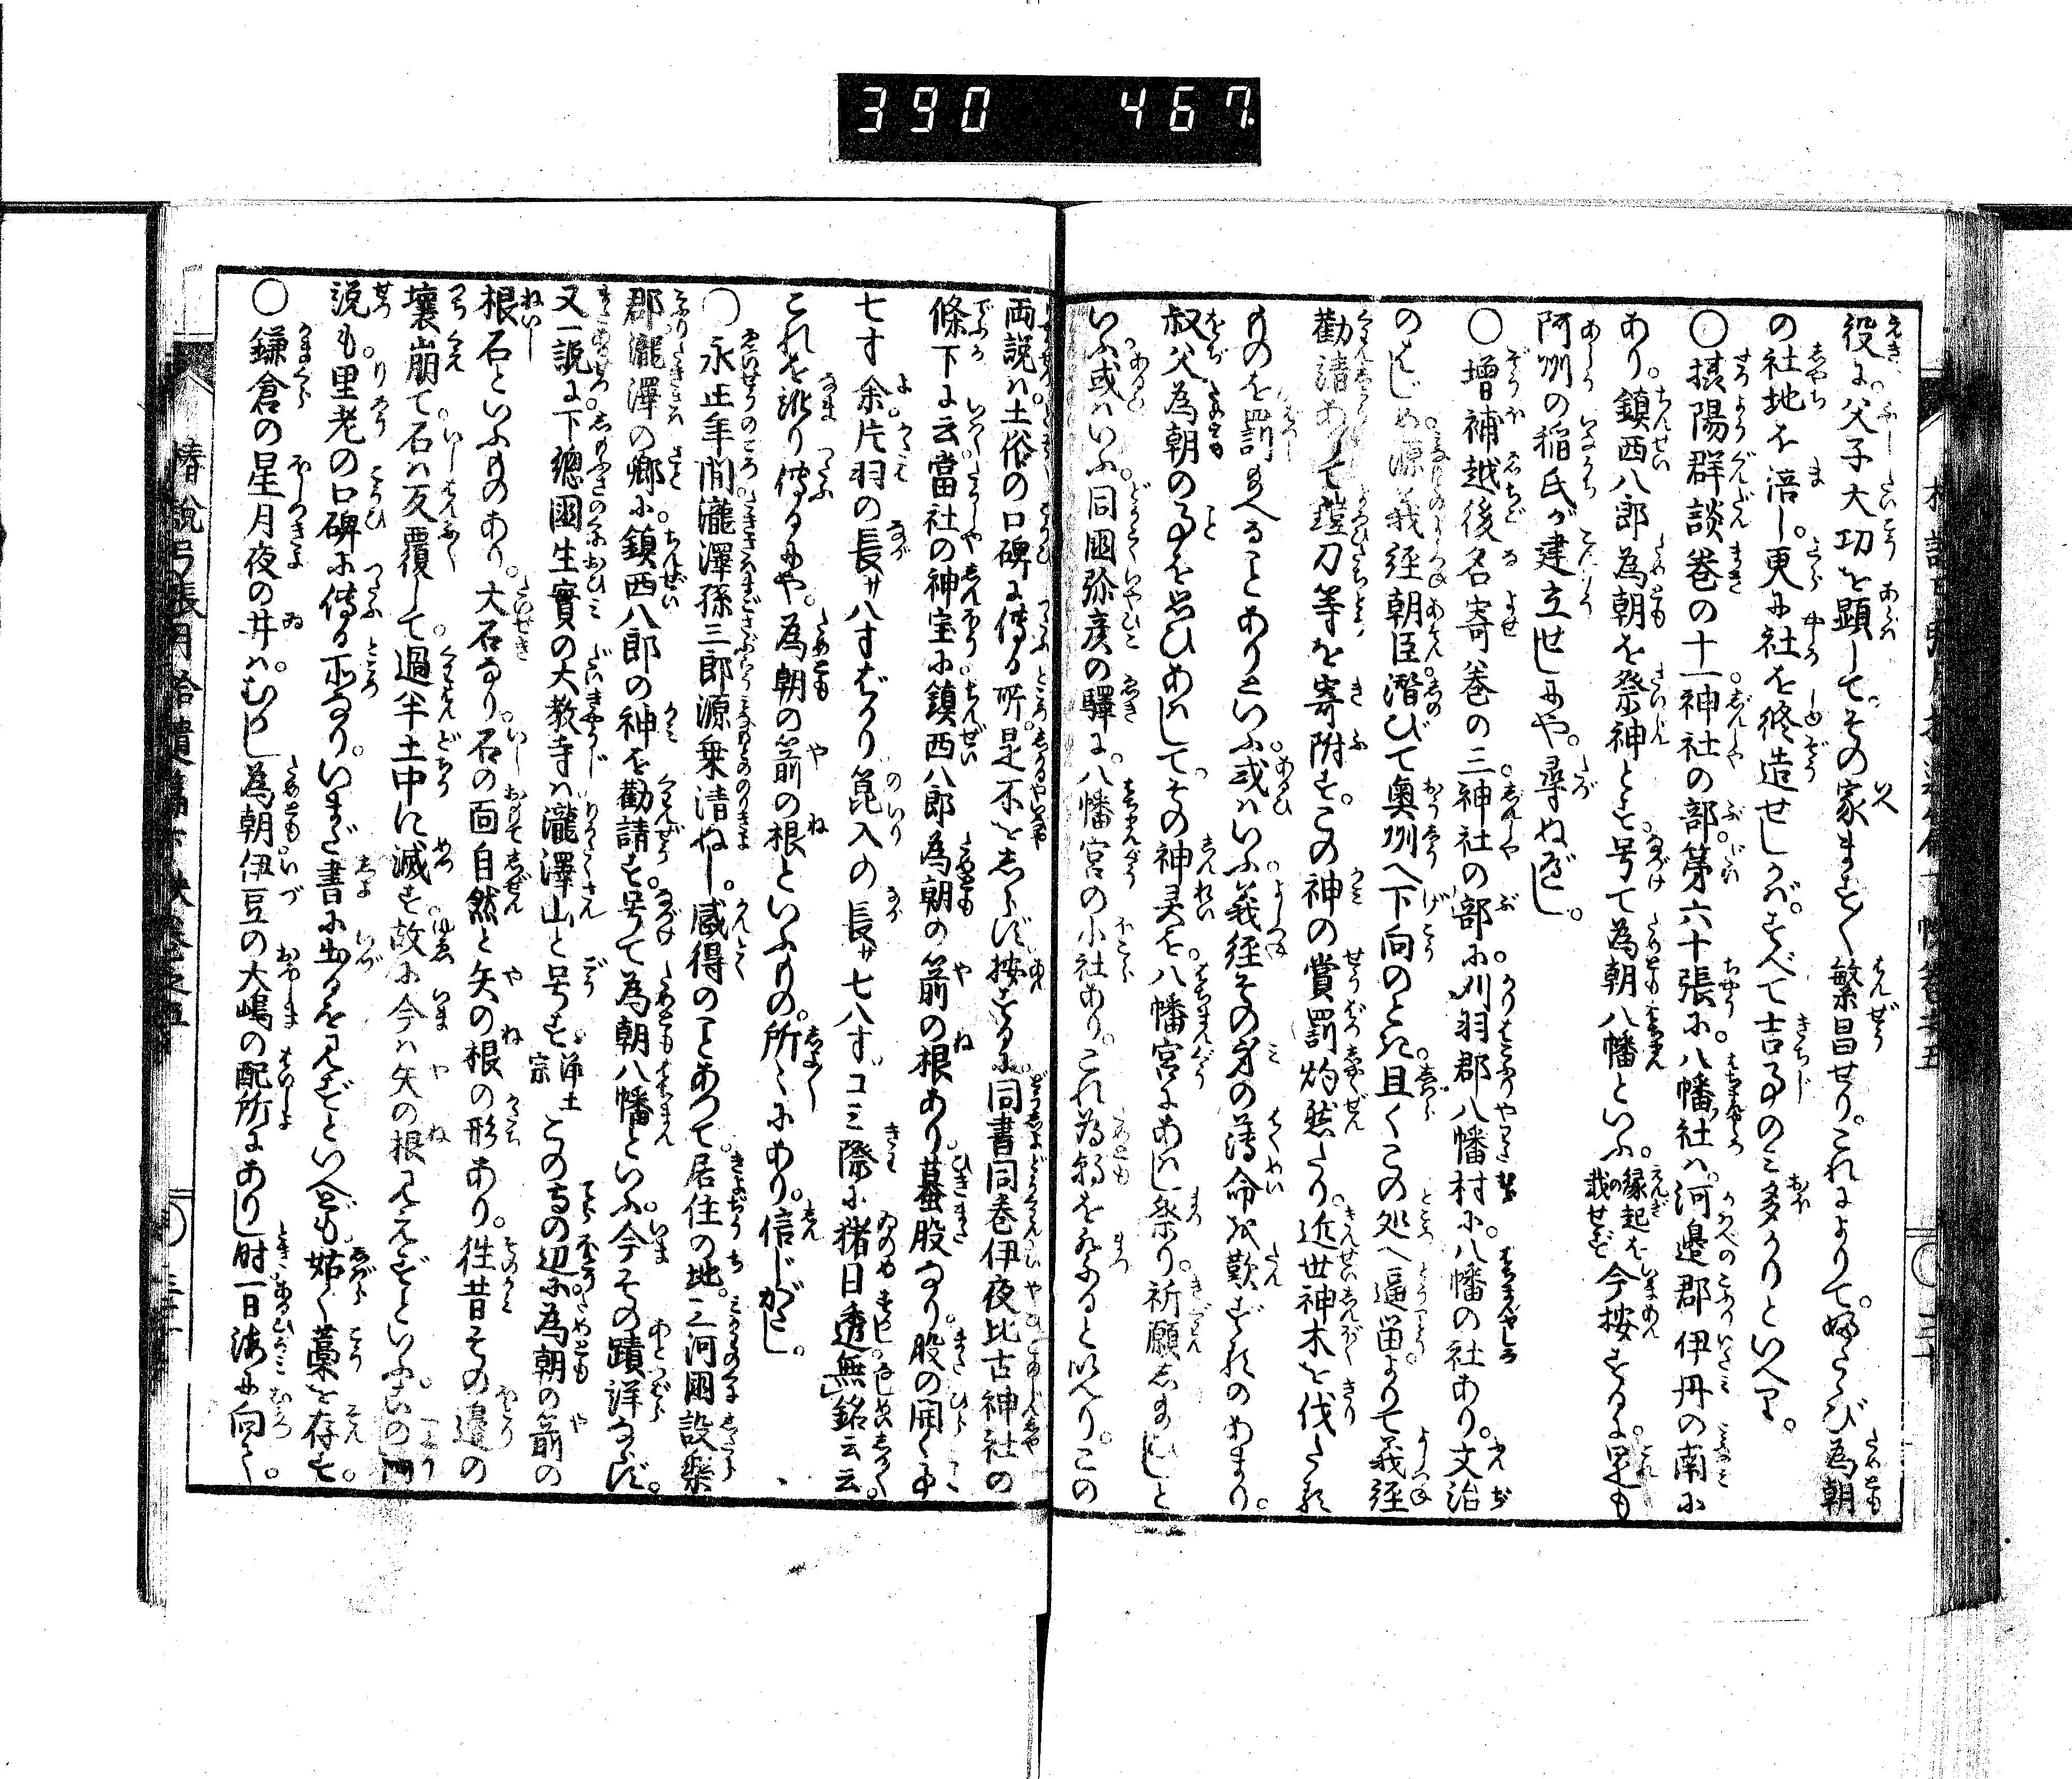 390 467.
役に父子大功を顕してその家ます〱繁昌せり。これによりて。ふたゝび為朝
の社地を涪し。更に社を修造せしかば。すべて吉事のミ多かりといへり。
○摂陽群談巻の十一神社の部。第六十張に。八幡社ハ。河邉郡伊丹の南に
あり。鎮西八郎為朝を祭神とす。号て為朝八幡といふ。縁起をのせず 今按ずるに。是も
阿州の稲氏が建立せしにや。尋ぬべし。
○増補越後名寄巻の三神社の部に。刈羽郡八幡村に。八幡の社あり。文治
のはじめ源義経朝臣。潜びて奥州へ下向のとき。且くこの処へ逗留。よりて義経
勸請ありて鎧刀等を寄附す。この神の賞罰灼然たり。近世神木を伐たる
ものを罰
ることありといふ。或ハいふ。義経その身の薄命を歎ずるのあまり。
叔父為朝の事を思ひあはして。その神灵を。八幡宮にあはし祭り。祈願しましと
いふ。或ハいふ。同國弥彦の驛に。八幡宮の小社あり。これ為朝を祭ると以へり。この
両説ハ土俗の口碑に傳る所。是不をしらず。按ずるに。同書同巻伊夜比古神社の
條下に云。當社の神宝に。鎮西八郎為朝の箭の根あり。蟇股なり。股の開く事
七寸余。片羽の長サ八寸ばかり。箆入の長サ七八寸。コミ際に猪目透。無銘云云。
これを訛り傳るにや。為朝の箭の根といふもの。所〻にあり。信じがたし。
○永正年間瀧澤孫三郎源乗清ぬし。感得のことあつて。居住の地。三河國設樂
郡瀧澤の郷に。鎮西八郎の神を勸請す。号て為朝八幡といふ。今その蹟詳ならず。
又一説に。下總國生實の大教寺ハ瀧澤山と号す。浄土宗 この寺の辺に。為朝の箭の
根石といふものあり。大石なり。石の面自然と矢の根の形あり。徃昔その邉の
壊崩て。石ハ反覆して。過半土中に滅す。故に今ハ矢の根見えずといふ。この両
説も。里老の口碑に傳る所なり。いまだ書に出るを見ずといへども。姑く藁を存す。
○鎌倉の星月夜の井ハ。むかし為朝伊豆の大嶋の配所にありし時。一日海に向て。
椿説弓張月拾遺篇